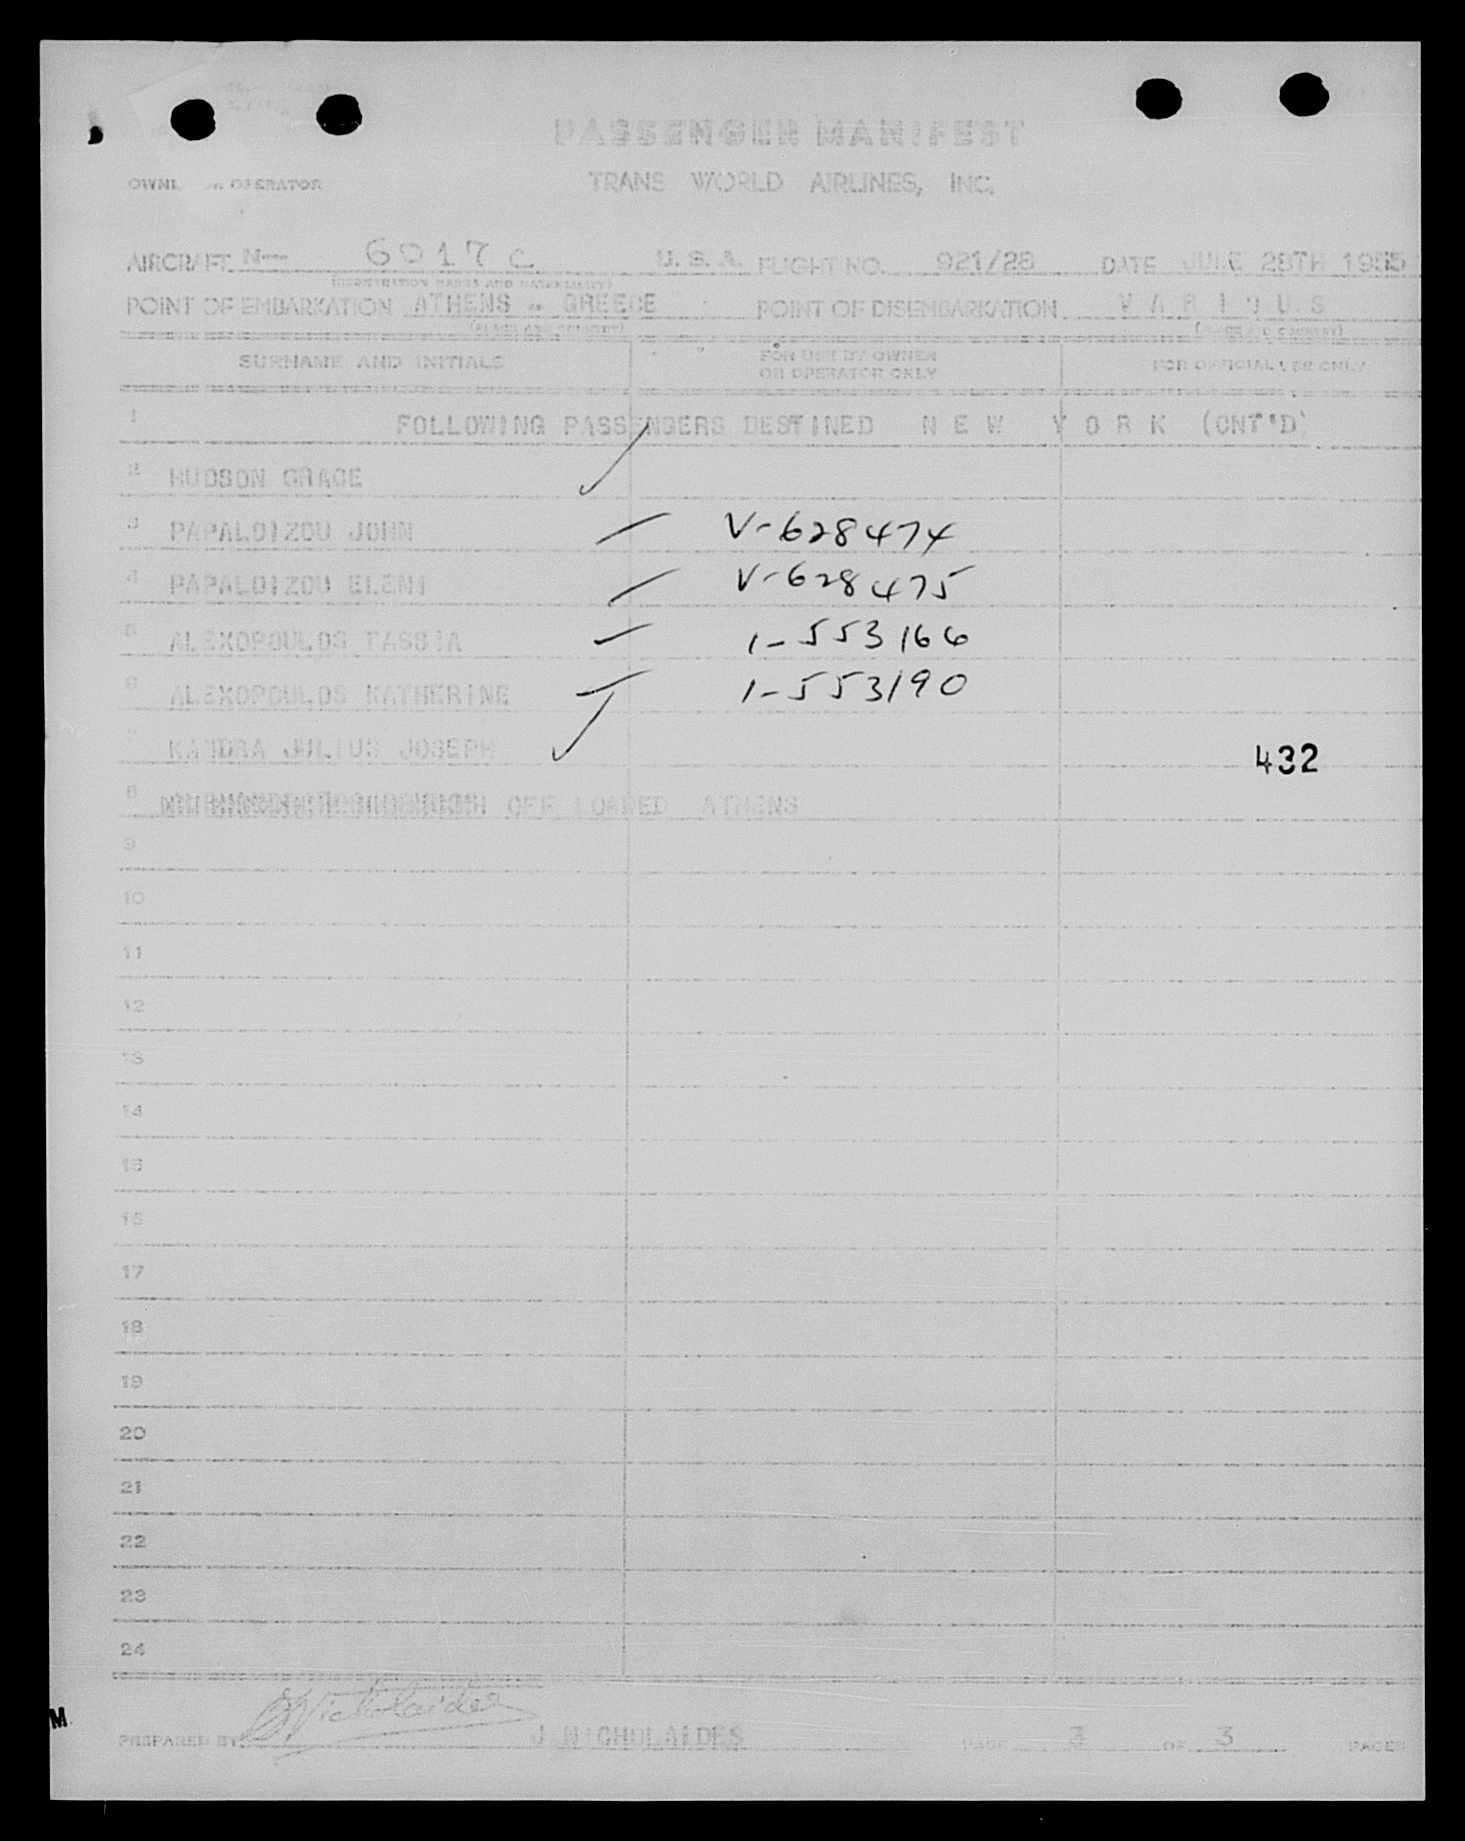 PASSENGER MANIFEST
OPERATOR TRANS WORLD AIRLINES, INC.
AIRCRAFT N-- 6017 C U. S. A. FLIGHT NO. 921/28 DATE JUNE 28TH 1955
(REGISTRATION MARKS AND NATIONALITY)
POINT OF EMBARKATION ATHENS - GREECE POINT OF DISEMBARKATION V A R I O U S
(PLACE AND COUNTRY) (PLACE AND COUNTRY)
SURNAME AND INITIALS FOR USE BY OWNER OR OPERATOR ONLY FOR OFFICIAL USE ONLY
1 FOLLOWING PASSENGERS DESTINED N E W Y O R K (CNT'D)
2 HUDSON GRACE
3 PAPALOIZOU JOHN V-628474
4 PAPALOIZOU ELENI V-628475
5 ALEXOPOULOS TASSIA 1-553166
6 ALEXOPOULOS KATHERINE 1-553190
7 KANDRA JULIUS JOSEPH 432
8 OFF LOADED ATHENS
9
10
11
12
13
14
15
16
17
18
19
20
21
22
23
24
M
PREPARED BY Nicholaides J.NICHOLAIDES PAGE 3 OF 3 PAGES